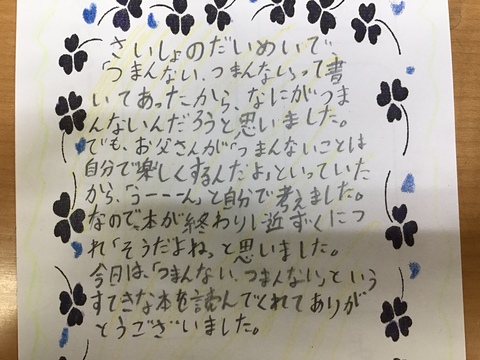 さいしょのだいめいで、
「つまんない、つまんない」って書
いてあったから、なにがつま
んないんだろうと思いました。
でも、お父さんが「つまんないことは
自分で楽しくするんだよ」といっていた
から、「うーーーん」と自分で考えました。
なので、本が終わりに近ずくにつ
れ「そうだよね」と思いました。
今日は、「つまんない、つまんない」という
すてきな本を読んでくれてありが
とうございました。